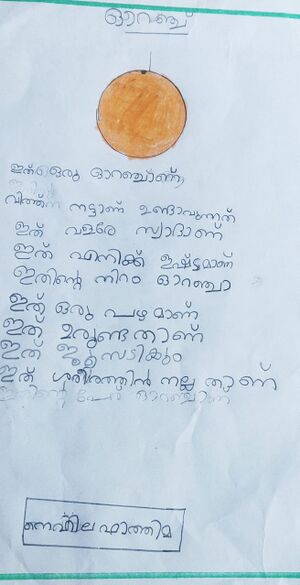 ഓറഞ്ച്
ഇത് ഒരു ഓറഞ്ചാണ്
വിത്ത് നട്ടാണ് ഉണ്ടാവുന്നത്
ഇത് വളരേ സ്വാദാണ്
ഇത് എനിക്ക് ഇഷ്ടമാണ്
ഇതിന്റെ നിറം ഓറഞ്ചാ
ഇത് ഒരു പഴമാണ്
ഇത് ഉരുണ്ടതാണ്
ഇത് ജൂസടിക്കും
ഇത് ശരീരത്തിന് നല്ലതാണ്
ഇതിന്റെ പേര് ഓറഞ്ചാണ്
ഫാത്തിമ